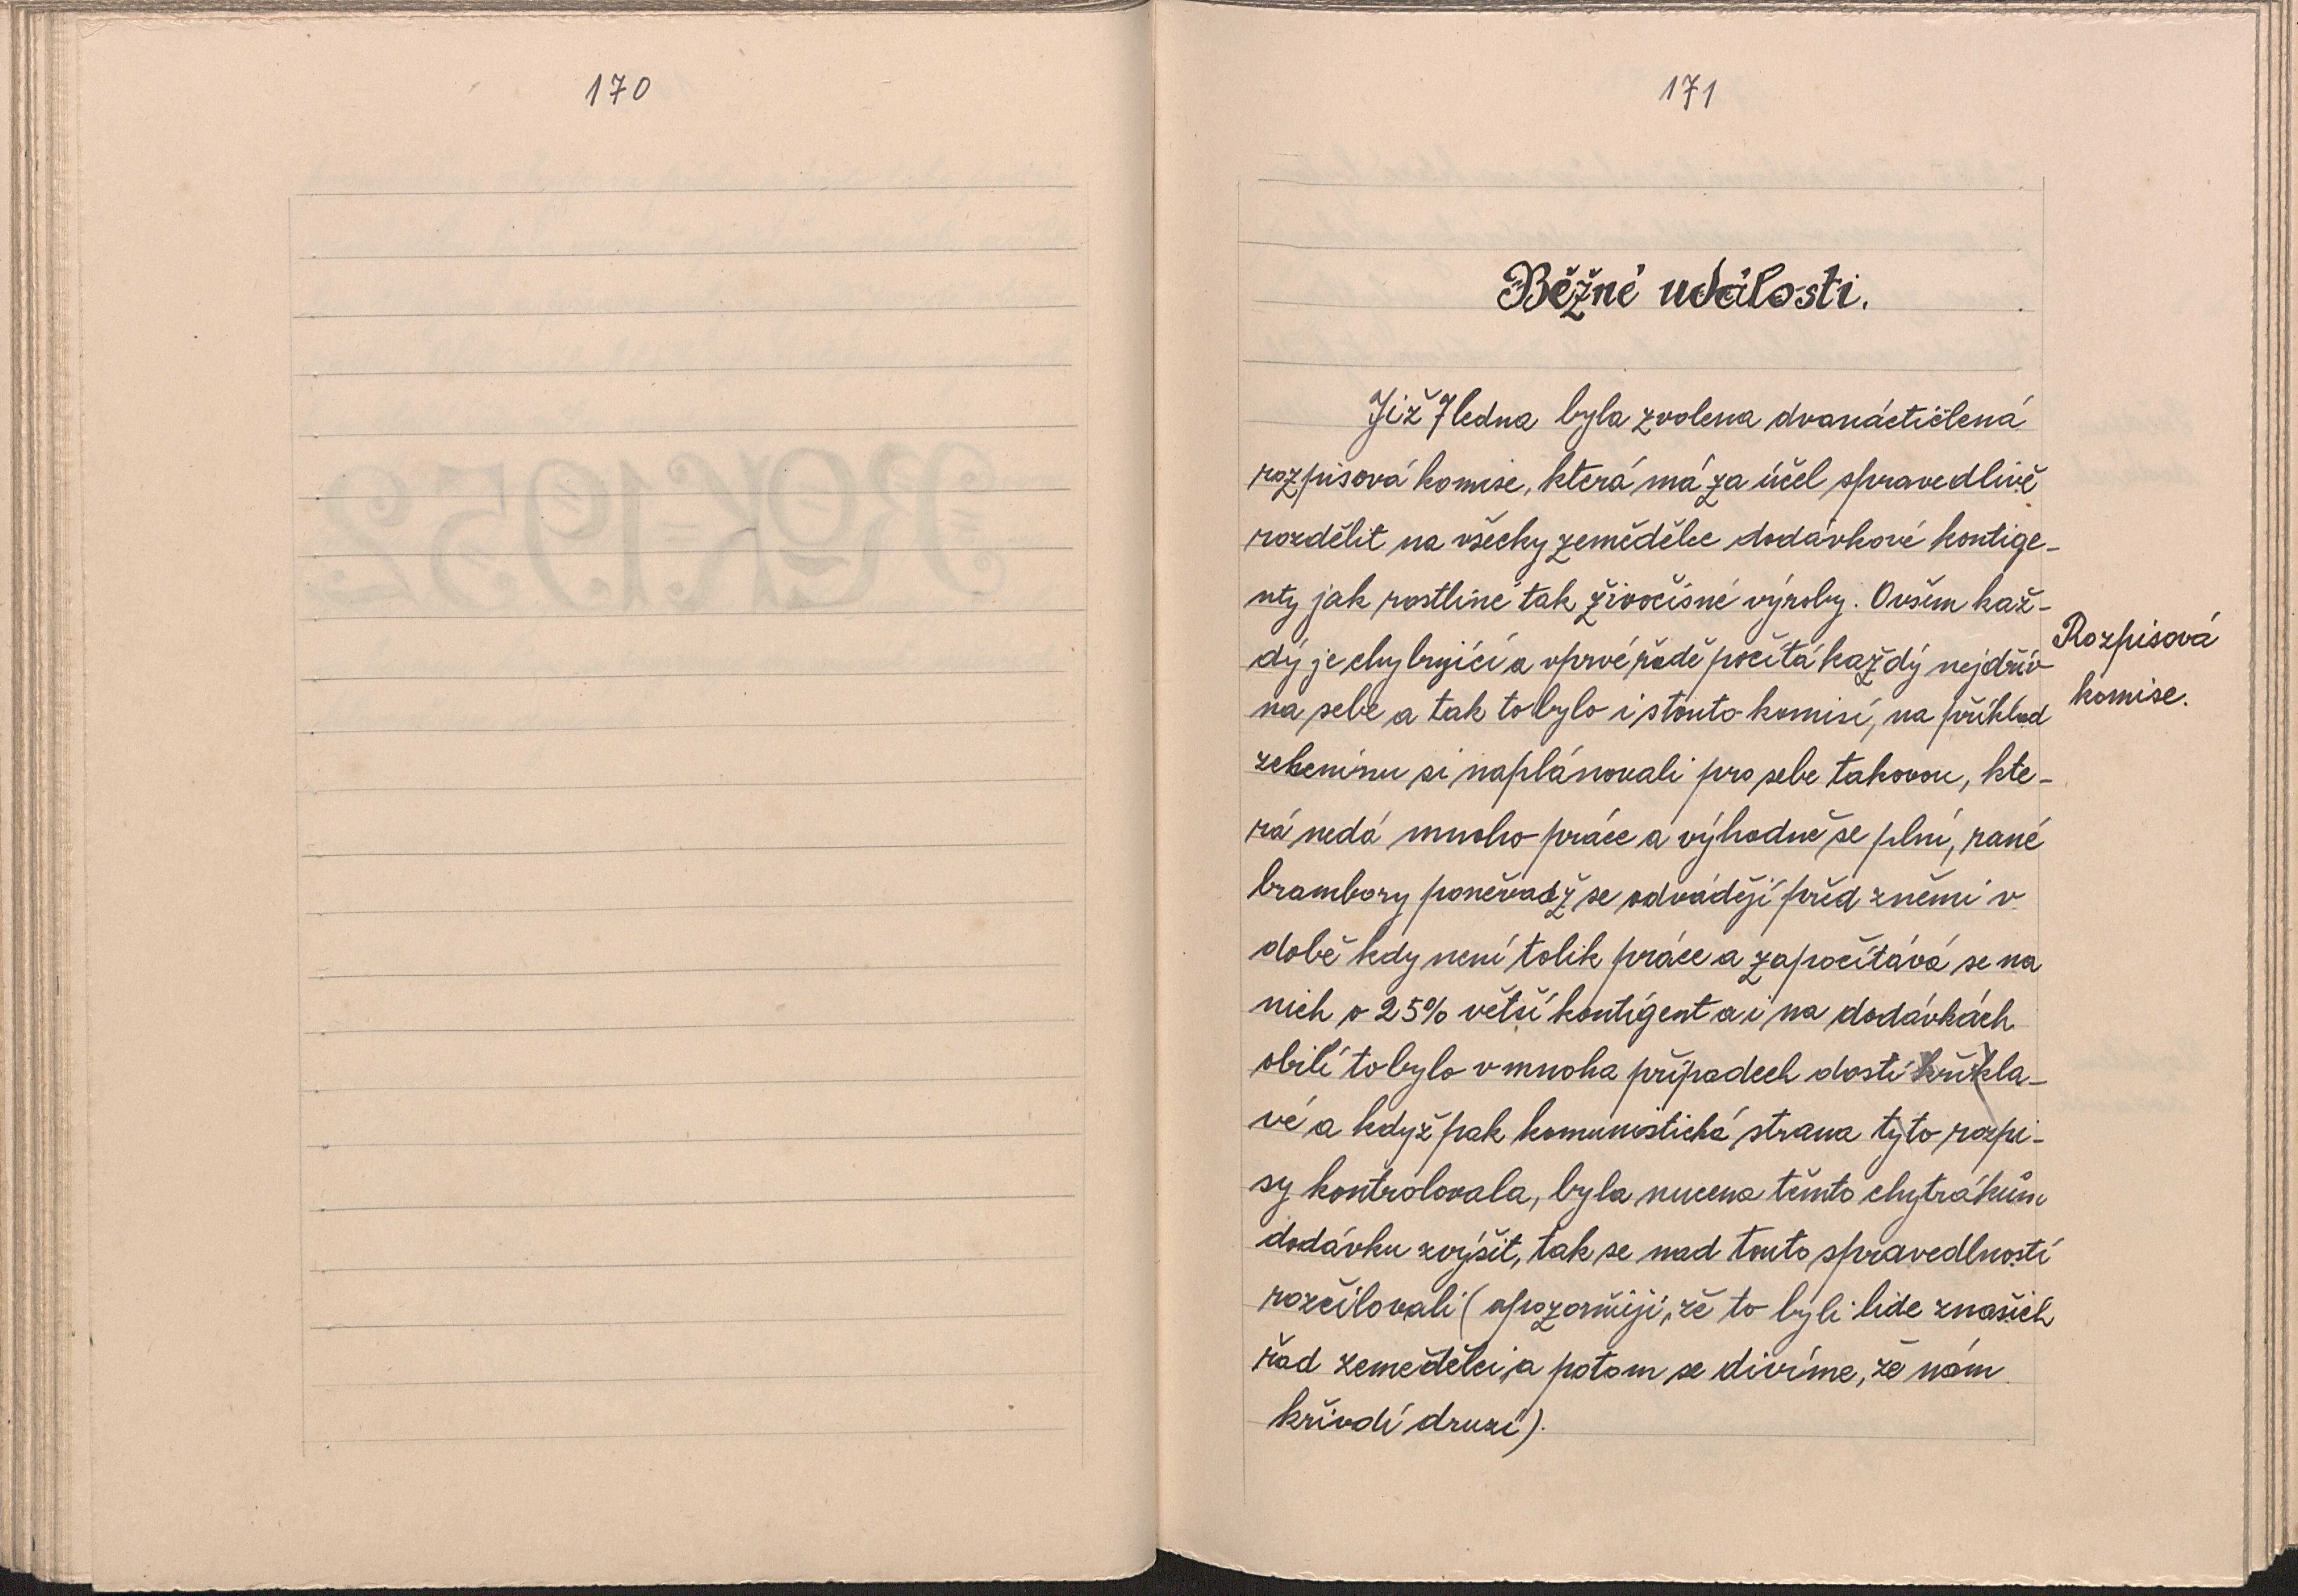 170
171
Běžné události.
Již 7 ledna byla zvolena dvanáctičlená
rozpisová komise, která má za účel spravedlivě
rozdělit na všecky zemědělce dodávkové kontige-
nty jak rostliné tak živočisné výroby. Ovšem kaž-
dý je chybující a vprvé řadě počítá každý nejdřív
na sebe a tak to bylo i stouto komisí, na příklad
zeleninu si naplánovali pro sebe takovou, kte-
rá nedá mnoho práce a výhodně se plní, rané
brambory poněvadž se odvádějí před zněmi v
době kdy není tolik práce a započítává se na
nich o 25% větší kontigent a i na dodávkách
obilí to bylo v mnoha případech dosti křikla-
vé a když pak komunistická strana tyto rozpi-
sy kontrolovala, byla nucena těmto chytrákům
dodávku zvýšit, tak se nad touto spravedlností
rozčilovali (upozorňuji, že to byli lide znašich
řad zemědělci, a potom se divíme, že nám
křivdí druzí).
Rozpisová
komise.